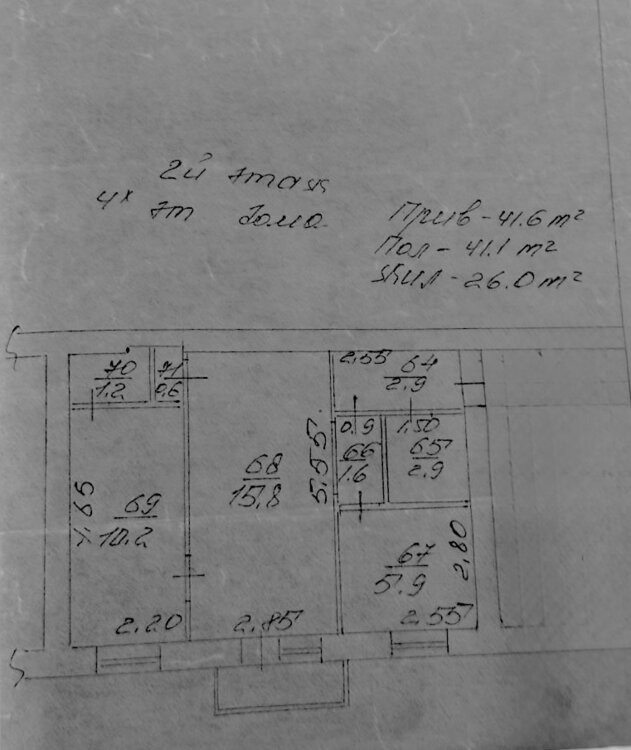 2й этаж
4х эт дома.
Прив - 41.6 m²
Пол - 41.1 m²
Жил - 26.0 m²
70
1.2
71
0.6
2.55
64
2.9
0.9
66
1.6
1.50
65
2.9
68
15.8
5.55
69
10.2
4.65
67
5.9
2.80
2.20
2.85
2.55